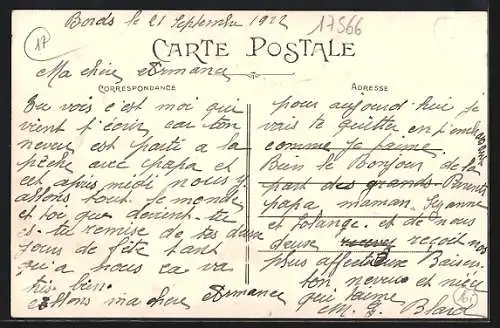 Bords le 21 Septembre 1922
17566
17
CARTE POSTALE
Ma chère Armance
CORRESPONDANCE
ADRESSE
Tu vois c'est moi qui
vient t'écrir car ton
neveu est parti a la
pêche avec papa et
cet après midi nous y
allons tout le monde
et toi que devient tu
es tu remise de tes deux
jours de fête tant
qu'a nous ca va
très bien.
ma chère Armance
pour aujourd'hui je
vais te quitter en t'
comme je t'aime
Bien le Bonjour de la
part des grands Parents
papa maman Suzanne
et Solange. et de nous
deux reçoit nos
plus affectueux Baisers
ton neveu et nièce
qui t'aime
Blard